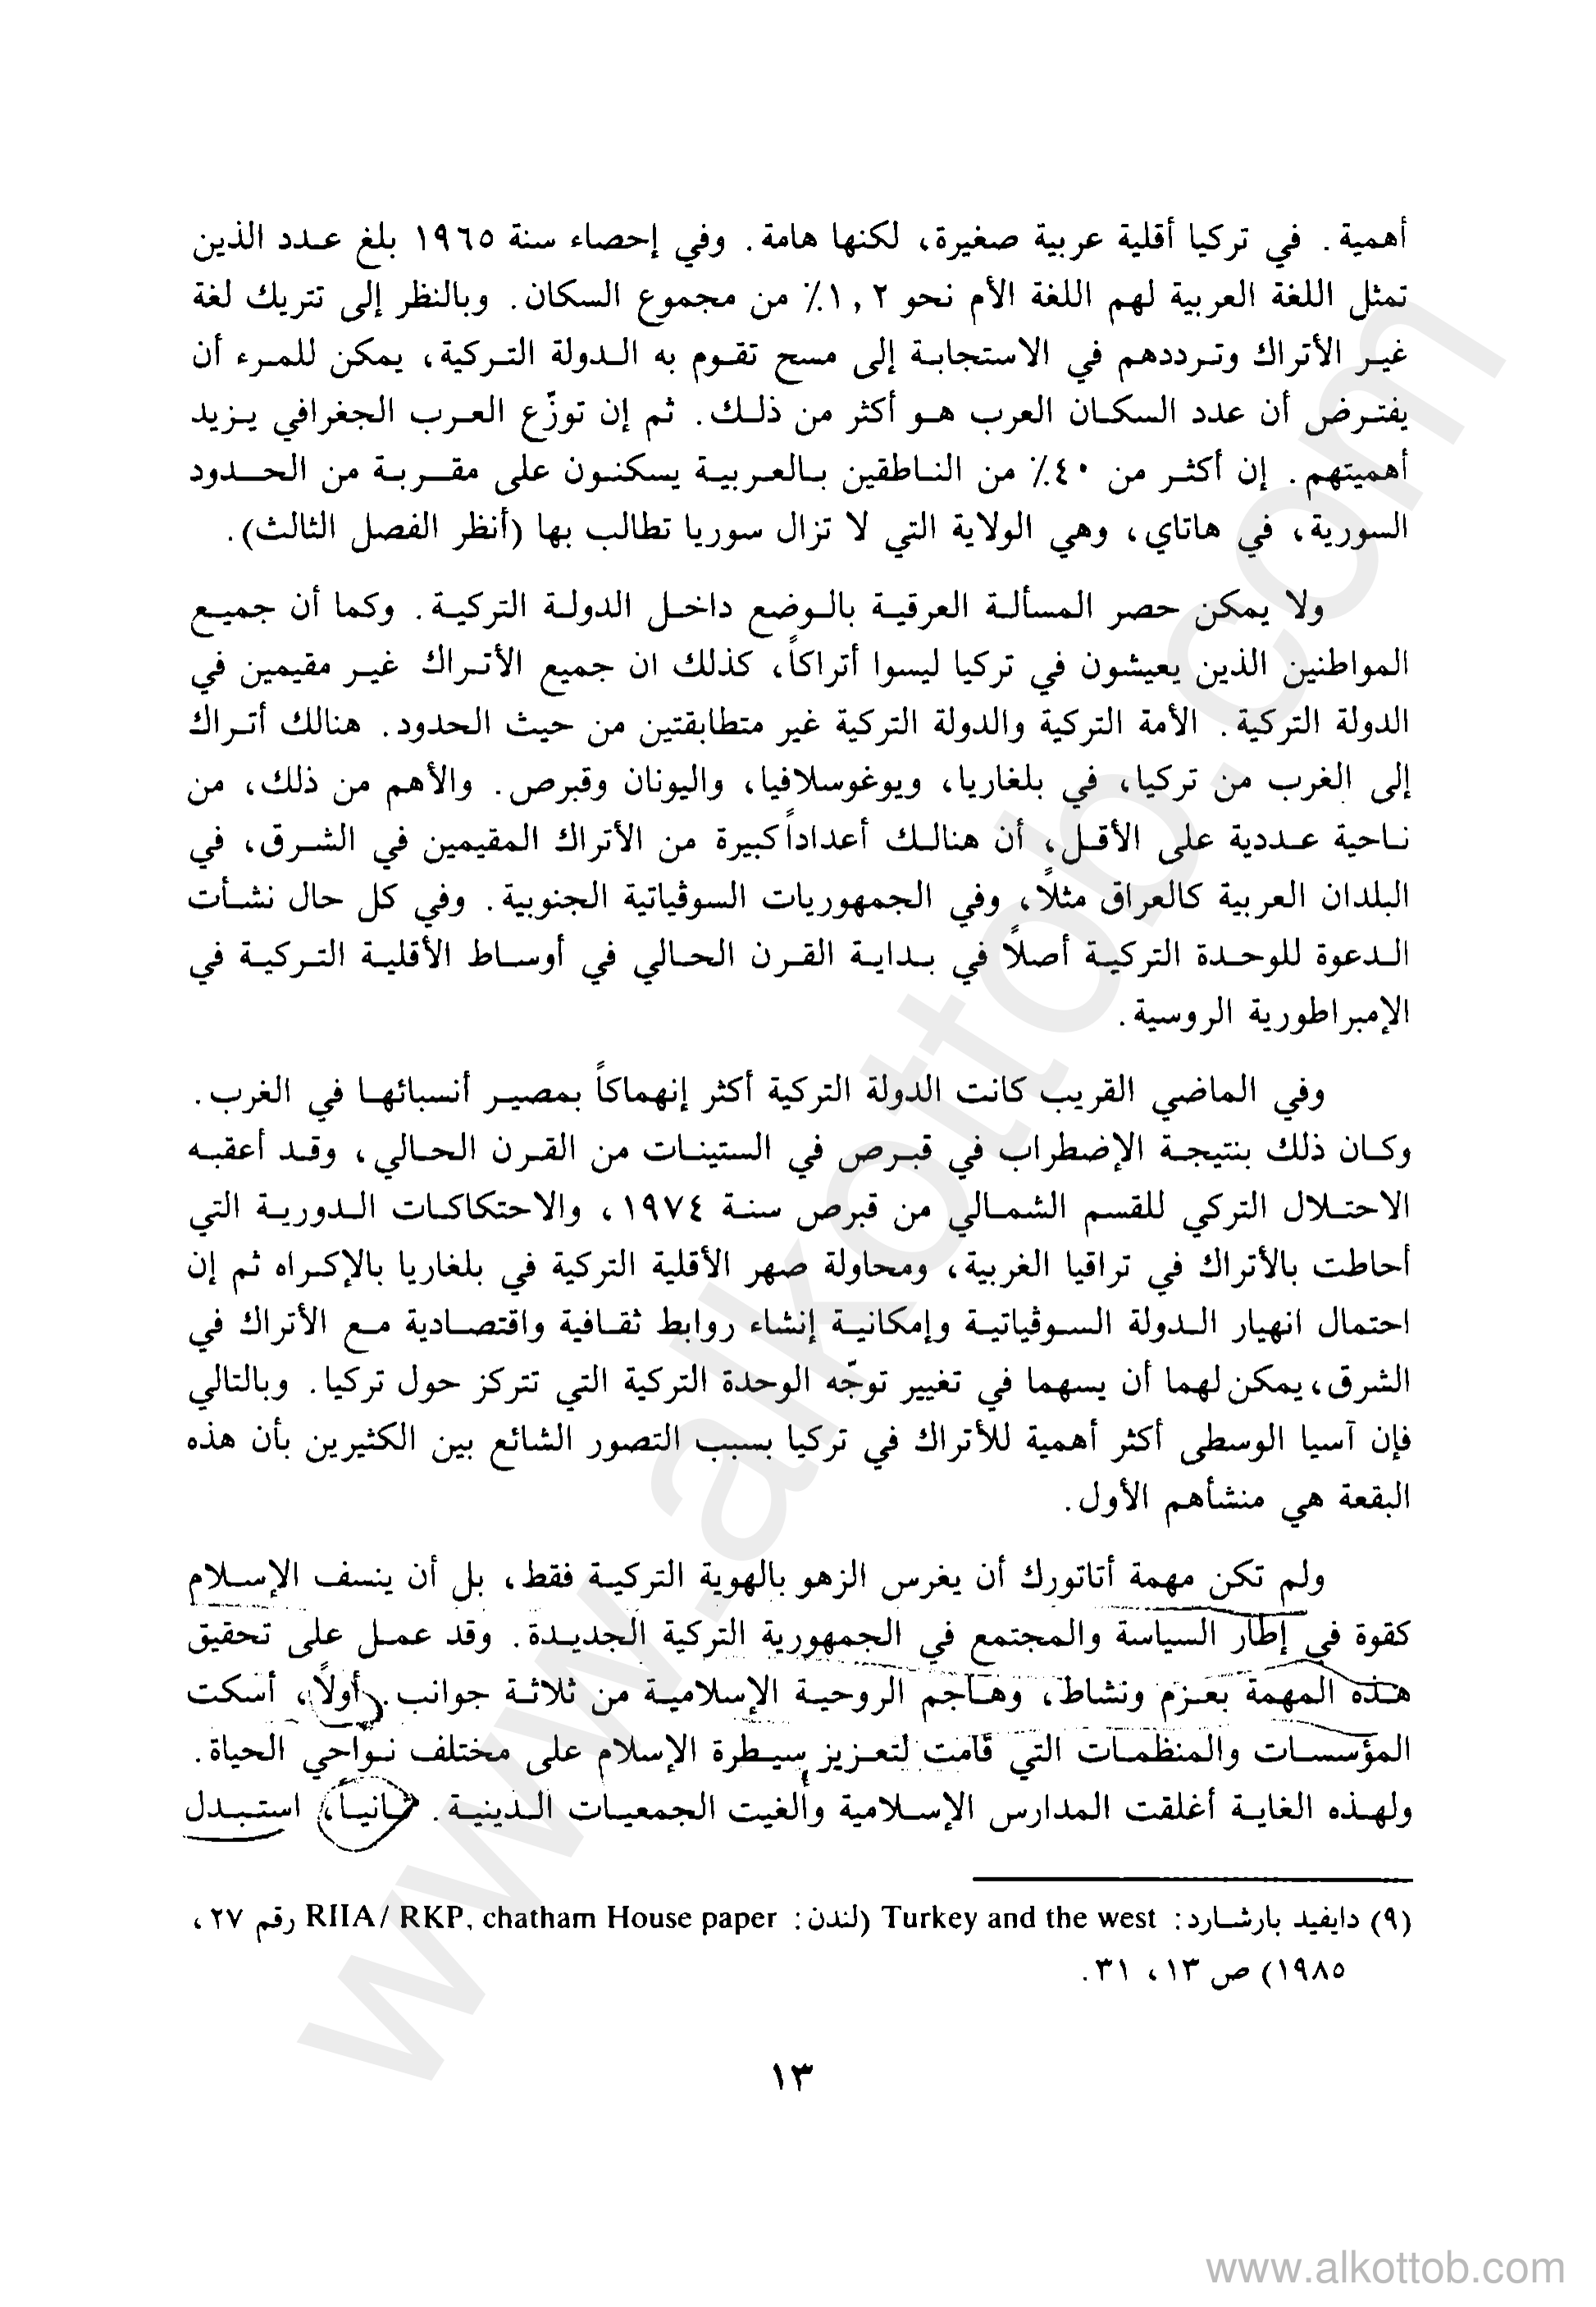 أهمية. في تركيا أقلية عربية صغيرة، لكنها هامة. وفي إحصاء سنة ١٩٦٥ بلغ عدد الذين
تمثل اللغة العربية لهم اللغة الأم نحو ١,٢٪ من مجموع السكان. وبالنظر إلى تتريك لغة
غير الأتراك وترددهم في الاستجابة إلى مسح تقوم به الدولة التركية، يمكن للمرء أن
يفترض أن عدد السكان العرب هو أكثر من ذلك. ثم إن توزّع العرب الجغرافي يزيد
أهميتهم. إن أكثر من ٤٠٪ من الناطقين بالعربية يسكنون على مقربة من الحدود
السورية، في هاتاي، وهي الولاية التي لا تزال سوريا تطالب بها (أنظر الفصل الثالث).
ولا يمكن حصر المسألة العرقية بالوضع داخل الدولة التركية. وكما أن جميع
المواطنين الذين يعيشون في تركيا ليسوا أتراكاً، كذلك ان جميع الأتراك غير مقيمين في
الدولة التركية. الأمة التركية والدولة التركية غير متطابقتين من حيث الحدود. هنالك أتراك
إلى الغرب من تركيا، في بلغاريا، ويوغوسلافيا، واليونان وقبرص. والأهم من ذلك، من
ناحية عددية على الأقل، أن هنالك أعداداً كبيرة من الأتراك المقيمين في الشرق، في
البلدان العربية كالعراق مثلاً، وفي الجمهوريات السوڤياتية الجنوبية. وفي كل حال نشأت
الدعوة للوحدة التركية أصلاً في بداية القرن الحالي في أوساط الأقلية التركية في
الإمبراطورية الروسية.
وفي الماضي القريب كانت الدولة التركية أكثر إنهماكاً بمصير أنسبائها في الغرب.
وكان ذلك بنتيجة الإضطراب في قبرص في الستينات من القرن الحالي، وقد أعقبه
الاحتلال التركي للقسم الشمالي من قبرص سنة ١٩٧٤، والاحتكاكات الدورية التي
أحاطت بالأتراك في تراقيا الغربية، ومحاولة صهر الأقلية التركية في بلغاريا بالإكراه ثم إن
احتمال انهيار الدولة السوڤياتية وإمكانية إنشاء روابط ثقافية واقتصادية مع الأتراك في
الشرق، يمكن لهما أن يسهما في تغيير توجّه الوحدة التركية التي تتركز حول تركيا. وبالتالي
فإن آسيا الوسطى أكثر أهمية للأتراك في تركيا بسبب التصور الشائع بين الكثيرين بأن هذه
البقعة هي منشأهم الأول.
ولم تكن مهمة أتاتورك أن يغرس الزهو بالهوية التركية فقط، بل أن ينسف الإسلام
كقوة في إطار السياسة والمجتمع في الجمهورية التركية الجديدة. وقد عمل على تحقيق
هذه المهمة بعزم ونشاط، وهاجم الروحية الإسلامية من ثلاثة جوانب. أولاً، أسكت
المؤسسات والمنظمات التي قامت لتعزيز سيطرة الإسلام على مختلف نواحي الحياة.
ولهذه الغاية أغلقت المدارس الإسلامية وألغيت الجمعيات الدينية. ثانياً، استبدل
(٩) دايفيد بارشارد: Turkey and the west (لندن: RIIA/ RKP, chatham House paper رقم ٢٧،
١٩٨٥) ص ١٣، ٣١.
١٣
www.alkottob.com
www.alkottob.com